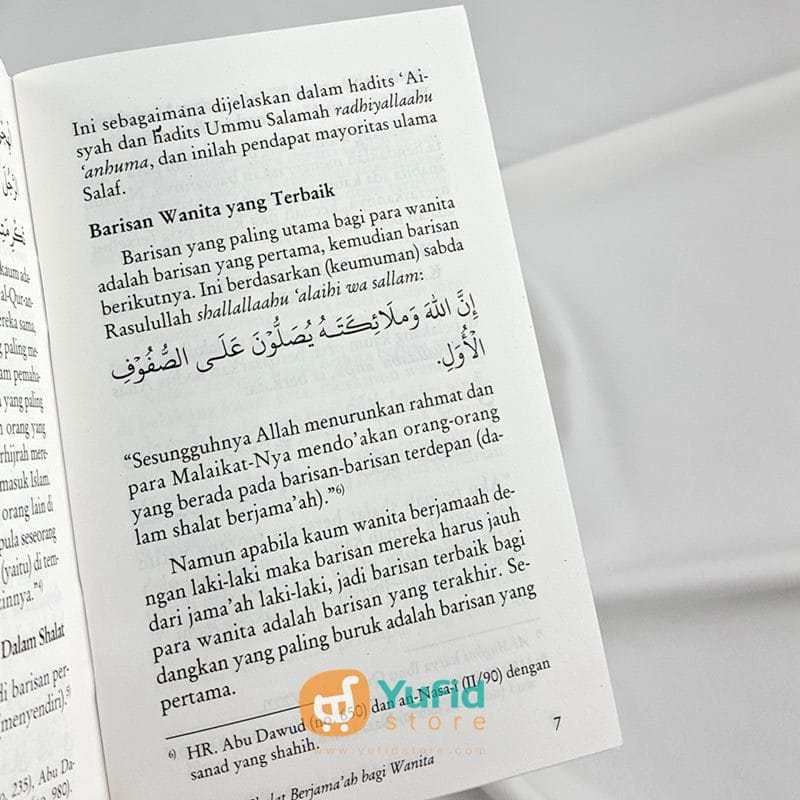 kaum ada-
al-Qur-an-
ereka sama,
g paling me-
am pemaha-
yang paling
orang yang
rhijrah mere-
masuk Islam
orang lain di
pula seseorang
(yaitu) di tem-
innya."4)
Dalam Shalat
di barisan per-
menyendiri).5)
235), Abu Da-
980).
Ini sebagaimana dijelaskan dalam hadits 'Ai-
syah dan hadits Ummu Salamah radhiyallaahu
'anhuma, dan inilah pendapat mayoritas ulama
Salaf.
Barisan Wanita yang Terbaik
Barisan yang paling utama bagi para wanita
adalah barisan yang pertama, kemudian barisan
berikutnya. Ini berdasarkan (keumuman) sabda
Rasulullah shallallaahu 'alaihi wa sallam:
إِنَّ اللهَ وَمَلَائِكَتَهُ يُصَلُّوْنَ عَلَى الصُّفُوْفِ
الْأُوَلِ.
"Sesungguhnya Allah menurunkan rahmat dan
para Malaikat-Nya mendo'akan orang-orang
yang berada pada barisan-barisan terdepan (da-
lam shalat berjama'ah)."6)
Namun apabila kaum wanita berjamaah de-
ngan laki-laki maka barisan mereka harus jauh
dari jama'ah laki-laki, jadi barisan terbaik bagi
para wanita adalah barisan yang terakhir. Se-
dangkan yang paling buruk adalah barisan yang
pertama.
6) HR. Abu Dawud (no. 650) dan an-Nasa-i (II/90) dengan
sanad yang shahih.
Shalat Berjama'ah bagi Wanita
7
Yufid
store
www.yufidstore.com